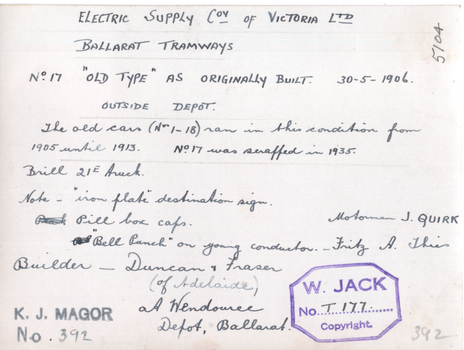 ELECTRIC SUPPLY COY OF VICTORIA LTD
BALLARAT TRAMWAYS
5104
No. 17 "OLD TYPE" AS ORIGINALLY BUILT. 30-5-1906.
OUTSIDE DEPOT.
The old cars (Nos 1-18) ran in this condition from
1905 until 1913. No 17 was scrapped in 1935.
Brill 21E truck.
Note - "iron plate" destination sign.
Pill box caps. Motorman J. QUIRK
"Bell Punch" on young conductor. - Fritz A. Thies
Builder - Duncan & Fraser
(of Adelaide)
at Wendouree
Depot, Ballarat.
K. J. MAGOR
No. 392
W. JACK
No. T 177.
Copyright.
392